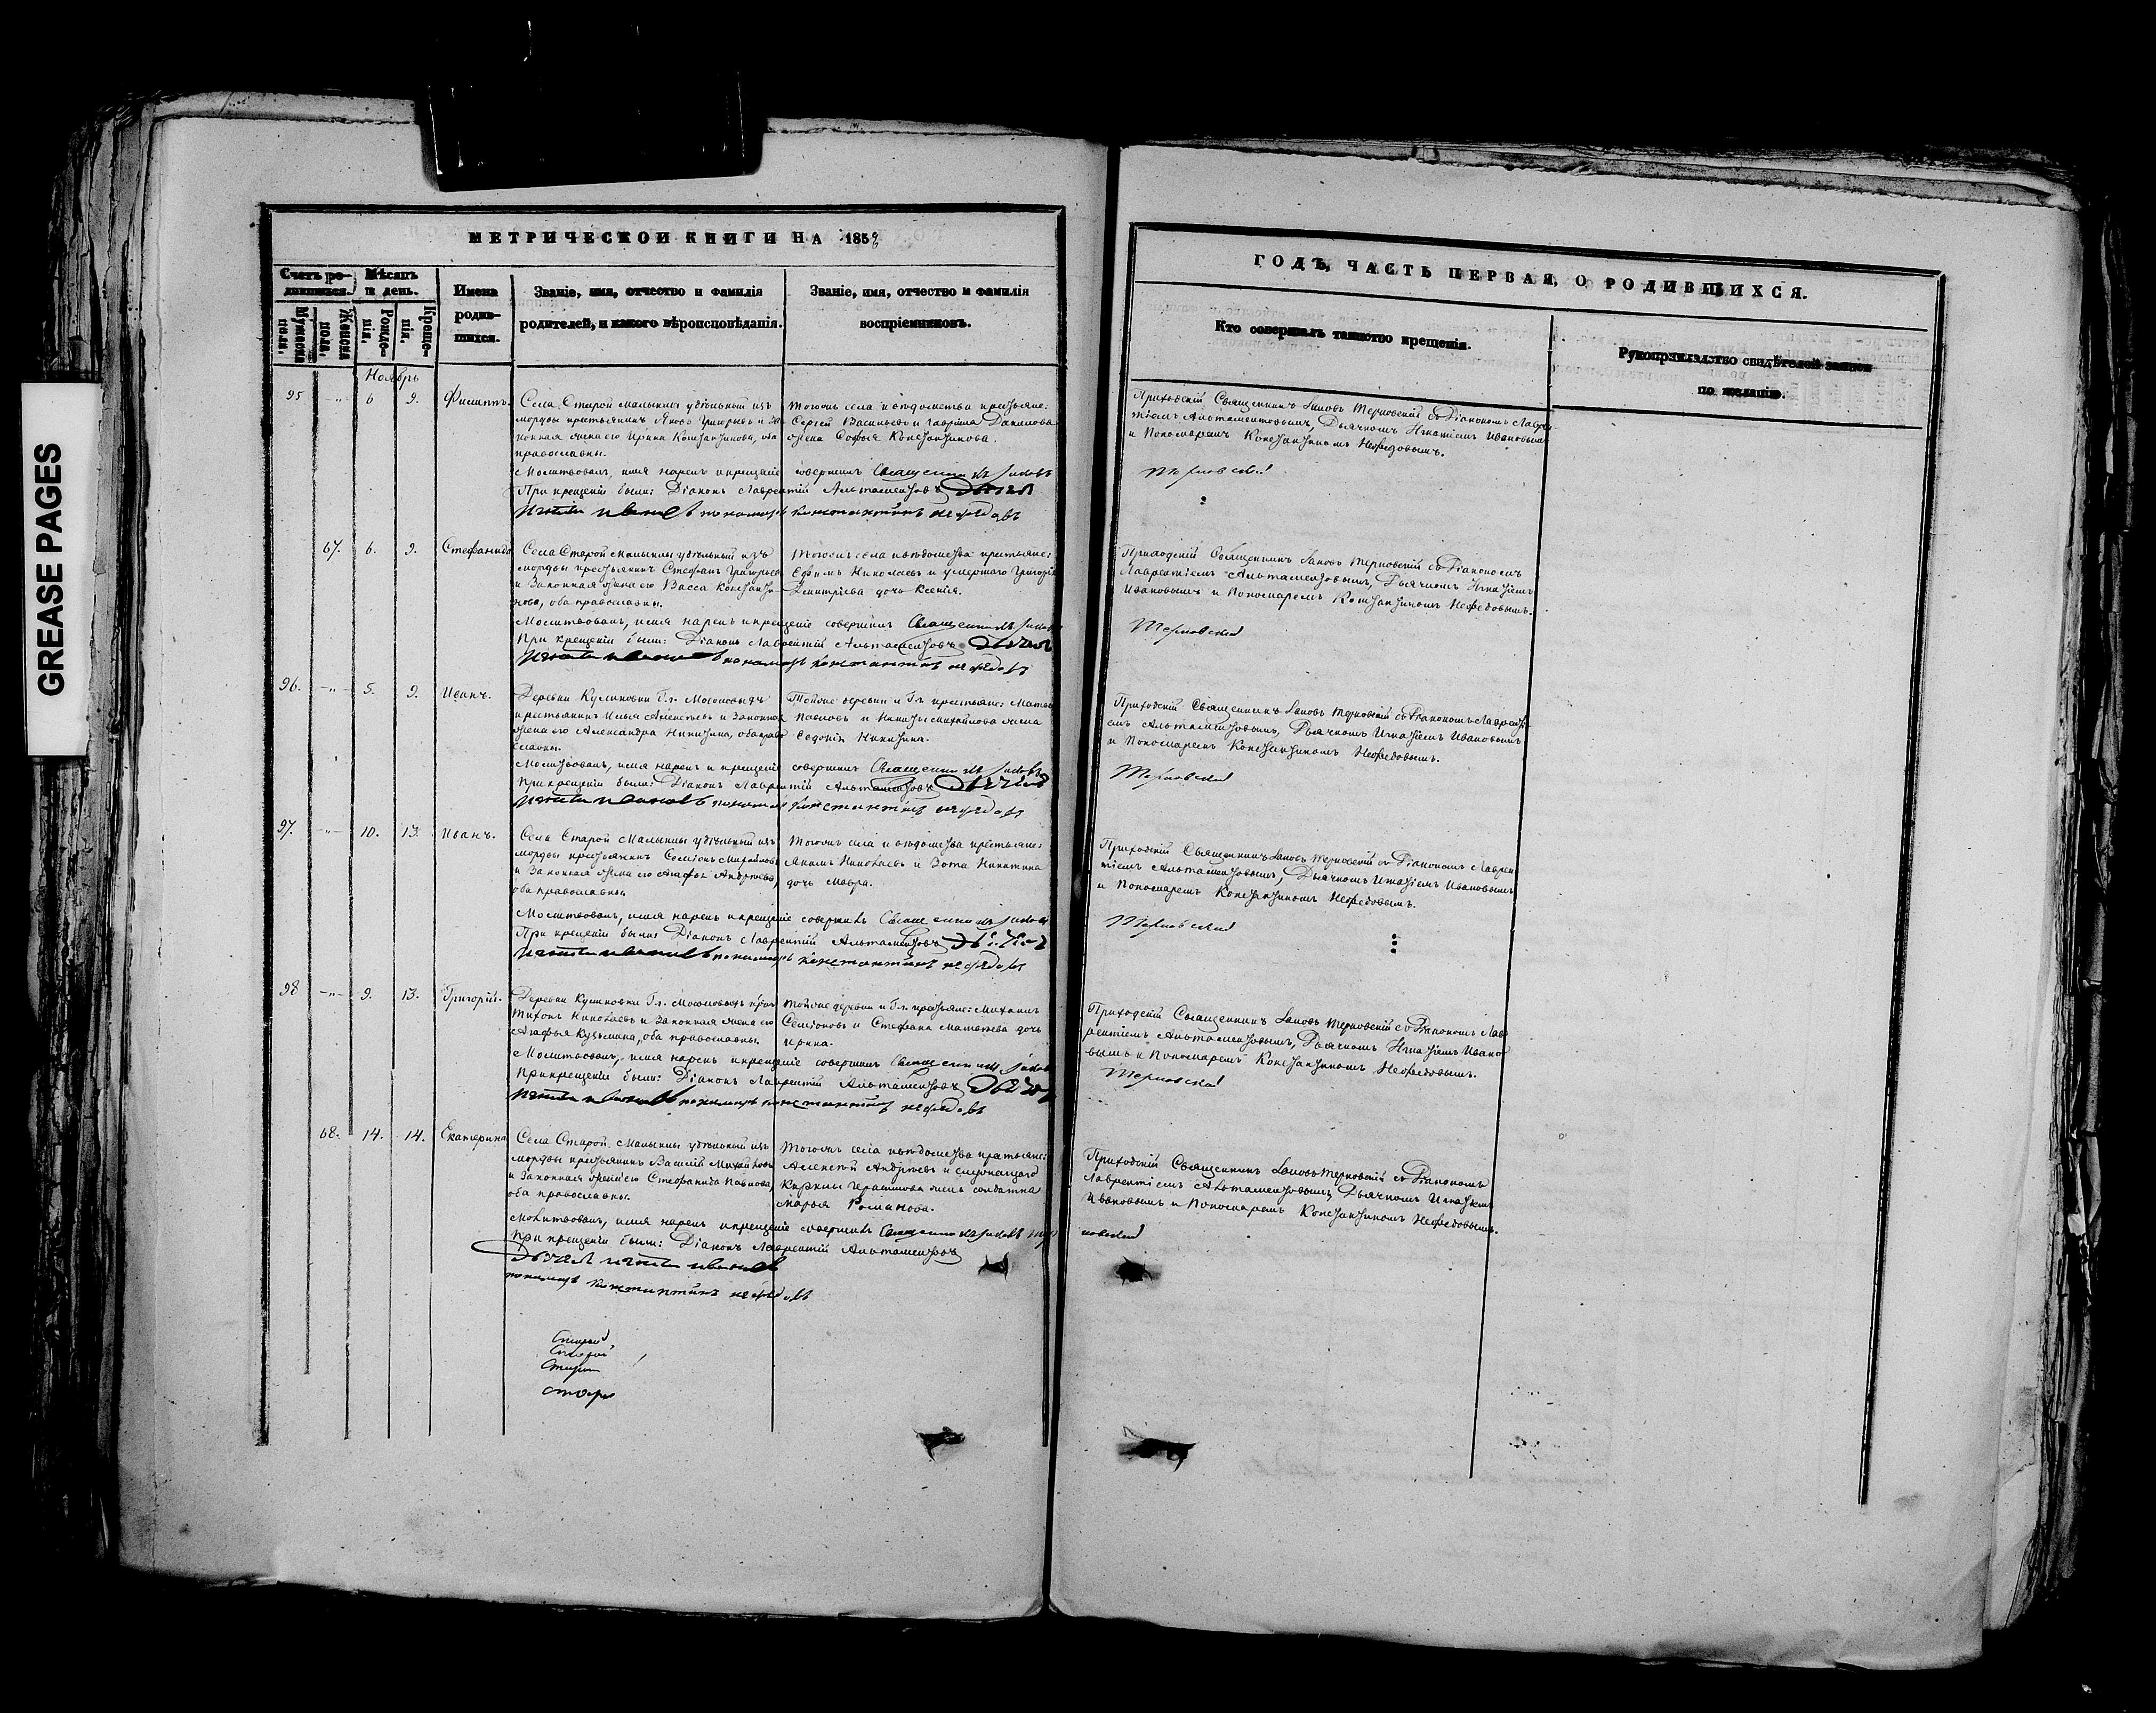 GREASE PAGES
МЕТРИЧЕСКОЙ КНИГИ НА 1858
Счетъ ро-
дившихся.
Мѣсяцъ
и день.
Мужеска
пола.
Женска
пола.
Рожде-
нія.
Креще-
нія.
Имена
родив-
шихся.
Званіе, имя, отчество и фамилія
родителей, и какого вѣроисповѣданія.
Званіе, имя, отчество и фамилія
воспріемниковъ.
ГОДЪ, ЧАСТЬ ПЕРВАЯ, О РОДИВШИХСЯ.
Кто совершалъ таинство крещенія.
Рукоприкладство свидѣтелей записи
по желанію.
Ноябрь
95 -"- 6 9. Филиппъ.
Села Старой Малыклы удѣльный изъ
мордвы крестьянинъ Яковъ Григорьевъ и за-
конная жена его Ирина Константинова, оба
православны.
Тогожъ села и вѣдомства крестьяне:
Сергей Васильевъ и Гаврила Данилова
жена Софья Константинова.
Молитвовалъ, имя нарекъ и крещеніе совершилъ Священникъ Іаковъ
При крещеніи были: Діаконъ Лаврентій Альтаментовъ Дьячекъ
Игнатій Ивановъ пономарь Константинъ Нефедовъ
Приходскій Священникъ Іаковъ Терновскій съ Діакономъ Лаврен-
тіемъ Альтаментовымъ, Дьячкомъ Игнатіемъ Ивановымъ
и Пономаремъ Константиномъ Нефедовымъ.
Терновскій
67. 6. 9. Стефанида
Села Старой Малыклы удѣльный изъ
мордвы крестьянинъ Стефанъ Григорьевъ
и законная жена его Васса Константи-
нова, оба православны.
Тогожъ села и вѣдомства крестьяне:
Ефимъ Николаевъ и умершаго Григорія
Дмитріева дочь Ксенія.
Молитвовалъ, имя нарекъ и крещеніе совершилъ Священникъ Іаковъ
При крещеніи были: Діаконъ Лаврентій Альтаментовъ Дьячекъ
Игнатій Ивановъ пономарь Константинъ Нефедовъ
Приходскій Священникъ Іаковъ Терновскій съ Діакономъ
Лаврентіемъ Альтаментовымъ, Дьячкомъ Игнатіемъ
Ивановымъ и Пономаремъ Константиномъ Нефедовымъ.
Терновскій
96. -"- 5. 9. Иванъ.
крестьянинъ Илья Алексѣевъ и законная
жена его Александра Никитина, оба право-
славны.
Тойже деревни и Гг. крестьяне: Матвей
Павловъ и Никиты Михайлова жена
Евдокія Никитина.
Молитвовалъ, имя нарекъ и крещеніе совершилъ Священникъ Іаковъ
При крещеніи были: Діаконъ Лаврентій Альтаментовъ Дьячекъ
Игнатій Ивановъ пономарь Константинъ Нефедовъ
Приходскій Священникъ Іаковъ Терновскій съ Діакономъ Лаврентi-
емъ Альтаментовымъ, Дьячкомъ Игнатіемъ Ивановымъ
и Пономаремъ Константиномъ Нефедовымъ.
Терновскій
97. -"- 10. 13. Иванъ.
Села Старой Малыклы удѣльный изъ
мордвы крестьянинъ Семіонъ Михайловъ
и законная жена его Агафья Андреева,
оба православны.
Тогожъ села и вѣдомства крестьяне:
Якимъ Николаевъ и Зота Никитина
дочь Мавра.
Молитвовалъ, имя нарекъ и крещеніе совершилъ Священникъ Іаковъ
При крещеніи были: Діаконъ Лаврентій Альтаментовъ Дьячекъ
Игнатій Ивановъ пономарь Константинъ Нефедовъ
Приходскій Священникъ Іаковъ Терновскій съ Діакономъ Лаврен-
тіемъ Альтаментовымъ, Дьячкомъ Игнатіемъ Ивановымъ
и Пономаремъ Константиномъ Нефедовымъ.
Терновскій
98 -"- 9. 13. Григорій.
Тихонъ Николаевъ и законная жена его
Агафья Кузьмина, оба православны.
Тойже деревни и Гг. крестьяне: Михаилъ
Семіоновъ и Стефана Матвѣева дочь
Ирина.
Молитвовалъ, имя нарекъ и крещеніе совершилъ Священникъ Іаковъ
При крещеніи были: Діаконъ Лаврентій Альтаментовъ Дьячекъ
Игнатій Ивановъ пономарь Константинъ Нефедовъ
Приходскій Священникъ Іаковъ Терновскій съ Діакономъ Лав-
рентіемъ Альтаментовымъ, Дьячкомъ Игнатіемъ Ивано-
вымъ и Пономаремъ Константиномъ Нефедовымъ.
Терновскій
68. 14. 14. Екатерина
Села Старой Малыклы удѣльный изъ
мордвы крестьянинъ Василій Михайловъ
и законная жена его Стефанида Павлова,
оба православны.
Тогожъ села и вѣдомства крестьяне:
Алексѣй Андреевъ и служащаго
жена солдатка
Марья Романова.
Молитвовалъ, имя нарекъ и крещеніе совершилъ Священникъ Іаковъ Тер-
новскій
При крещеніи были: Діаконъ Лаврентій Альтаментовъ
Дьячекъ Игнатій Ивановъ
пономарь Константинъ Нефедовъ
Приходскій Священникъ Іаковъ Терновскій съ Діакономъ
Лаврентіемъ Альтаментовымъ, Дьячкомъ Игнатіемъ
Ивановымъ и Пономаремъ Константиномъ Нефедовымъ.
Старой
Старой